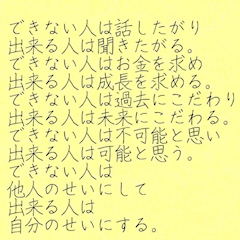 できない人は話したがり
出来る人は聞きたがる。
できない人はお金を求め
出来る人は成長を求める。
できない人は過去にこだわり
出来る人は未来にこだわる。
できない人は不可能と思い
出来る人は可能と思う。
できない人は
他人のせいにして
出来る人は
自分のせいにする。